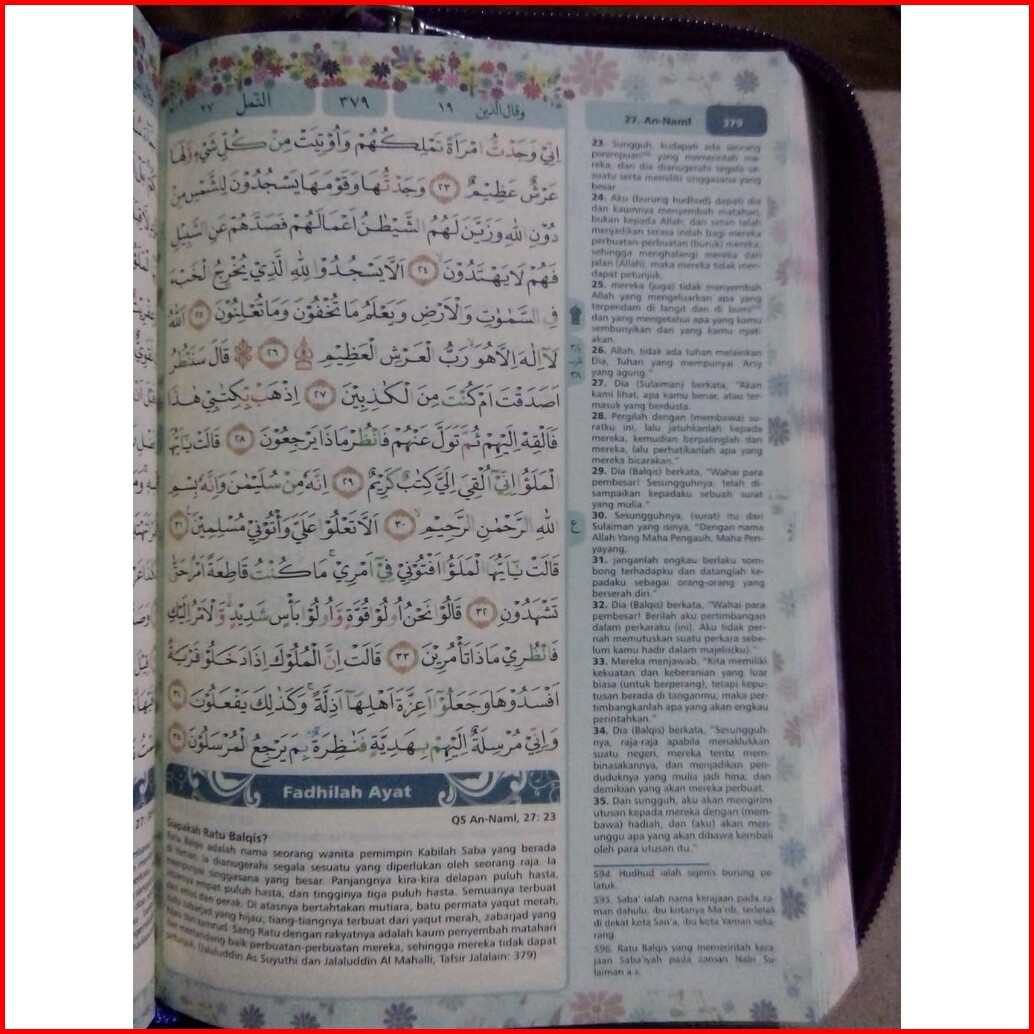 وقال الذين ١٩
٣٧٩
النمل ٢٧
اِنِّيْ وَجَدْتُّ امْرَاَةً تَمْلِكُهُمْ وَاُوْتِيَتْ مِنْ كُلِّ شَيْءٍ وَّلَهَا
عَرْشٌ عَظِيْمٌ ٢٣ وَجَدْتُّهَا وَقَوْمَهَا يَسْجُدُوْنَ لِلشَّمْسِ مِنْ
دُوْنِ اللّٰهِ وَزَيَّنَ لَهُمُ الشَّيْطٰنُ اَعْمَالَهُمْ فَصَدَّهُمْ عَنِ السَّبِيْلِ
فَهُمْ لَا يَهْتَدُوْنَۙ ٢٤ اَلَّا يَسْجُدُوْا لِلّٰهِ الَّذِيْ يُخْرِجُ الْخَبْءَ
فِى السَّمٰوٰتِ وَالْاَرْضِ وَيَعْلَمُ مَا تُخْفُوْنَ وَمَا تُعْلِنُوْنَ ٢٥ اَللّٰهُ
لَآ اِلٰهَ اِلَّا هُوَۙ رَبُّ الْعَرْشِ الْعَظِيْمِ ۩ ٢٦ ۞ قَالَ سَنَنْظُرُ
اَصَدَقْتَ اَمْ كُنْتَ مِنَ الْكٰذِبِيْنَ ٢٧ اِذْهَبْ بِّكِتٰبِيْ هٰذَا
فَاَلْقِهْ اِلَيْهِمْ ثُمَّ تَوَلَّ عَنْهُمْ فَانْظُرْ مَاذَا يَرْجِعُوْنَ ٢٨ قَالَتْ يٰٓاَيُّهَا
الْمَلَؤُا اِنِّيْٓ اُلْقِيَ اِلَيَّ كِتٰبٌ كَرِيْمٌ ٢٩ اِنَّهٗ مِنْ سُلَيْمٰنَ وَاِنَّهٗ بِسْمِ
اللّٰهِ الرَّحْمٰنِ الرَّحِيْمِۙ ٣٠ اَلَّا تَعْلُوْا عَلَيَّ وَأْتُوْنِيْ مُسْلِمِيْنَ ࣖ ٣١
قَالَتْ يٰٓاَيُّهَا الْمَلَؤُا اَفْتُوْنِيْ فِيْٓ اَمْرِيْۚ مَا كُنْتُ قَاطِعَةً اَمْرًا حَتّٰى
تَشْهَدُوْنِ ٣٢ قَالُوْا نَحْنُ اُولُوْا قُوَّةٍ وَّاُولُوْا بَأْسٍ شَدِيْدٍ ەۙ وَّالْاَمْرُ اِلَيْكِ
فَانْظُرِيْ مَاذَا تَأْمُرِيْنَ ٣٣ قَالَتْ اِنَّ الْمُلُوْكَ اِذَا دَخَلُوْا قَرْيَةً
اَفْسَدُوْهَا وَجَعَلُوْٓا اَعِزَّةَ اَهْلِهَآ اَذِلَّةًۚ وَكَذٰلِكَ يَفْعَلُوْنَ ٣٤
وَاِنِّيْ مُرْسِلَةٌ اِلَيْهِمْ بِهَدِيَّةٍ فَنٰظِرَةٌ ۢبِمَ يَرْجِعُ الْمُرْسَلُوْنَ ٣٥
Fadhilah Ayat
QS An-Naml, 27: 23
Siapakah Ratu Balqis?
Ratu Balqis adalah nama seorang wanita pemimpin Kabilah Saba yang berada
di Yaman. Ia dianugerahi segala sesuatu yang diperlukan oleh seorang raja. Ia
mempunyai singgasana yang besar. Panjangnya kira-kira delapan puluh hasta,
lebarnya empat puluh hasta, dan tingginya tiga puluh hasta. Semuanya terbuat
dari emas dan perak. Di atasnya bertahtakan mutiara, batu permata yaqut merah,
batu zabarjad yang hijau, tiang-tiangnya terbuat dari yaqut merah, zabarjad yang
hijau dan zamrud. Sang Ratu dengan rakyatnya adalah kaum penyembah matahari
dan memandang baik perbuatan-perbuatan mereka, sehingga mereka tidak dapat
petunjuk. (Jalaluddin As Suyuthi dan Jalaluddin Al Mahalli, Tafsir Jalalain: 379)
27. An-Naml 379
23. Sungguh, kudapati ada seorang
perempuan yang memerintah me-
reka, dan dia dianugerahi segala se-
suatu serta memiliki singgasana yang
besar.
24. Aku (burung hudhud) dapati dia
dan kaumnya menyembah matahari,
bukan kepada Allah; dan setan telah
menjadikan terasa indah bagi mereka
perbuatan-perbuatan (buruk) mereka,
sehingga menghalangi mereka dari
jalan (Allah), maka mereka tidak men-
dapat petunjuk.
25. mereka (juga) tidak menyembah
Allah yang mengeluarkan apa yang
terpendam di langit dan di bumi
dan yang mengetahui apa yang kamu
sembunyikan dan yang kamu nyat-
akan.
26. Allah, tidak ada tuhan melainkan
Dia, Tuhan yang mempunyai 'Arsy
yang agung."
27. Dia (Sulaiman) berkata, "Akan
kami lihat, apa kamu benar, atau ter-
masuk yang berdusta.
28. Pergilah dengan (membawa) su-
ratku ini, lalu jatuhkanlah kepada
mereka, kemudian berpalinglah dari
mereka, lalu perhatikanlah apa yang
mereka bicarakan."
29. Dia (Balqis) berkata, "Wahai para
pembesar! Sesungguhnya, telah di-
sampaikan kepadaku sebuah surat
yang mulia."
30. Sesungguhnya, (surat) itu dari
Sulaiman yang isinya, "Dengan nama
Allah Yang Maha Pengasih, Maha Pen-
yayang,
31. janganlah engkau berlaku som-
bong terhadapku dan datanglah ke-
padaku sebagai orang-orang yang
berserah diri."
32. Dia (Balqis) berkata, "Wahai para
pembesar! Berilah aku pertimbangan
dalam perkaraku (ini). Aku tidak per-
nah memutuskan suatu perkara sebe-
lum kamu hadir dalam majelis(ku)."
33. Mereka menjawab, "Kita memiliki
kekuatan dan keberanian yang luar
biasa (untuk berperang), tetapi kepu-
tusan berada di tanganmu; maka per-
timbangkanlah apa yang akan engkau
perintahkan."
34. Dia (Balqis) berkata, "Sesungguh-
nya, raja-raja apabila menaklukkan
suatu negeri, mereka tentu mem-
binasakannya, dan menjadikan pen-
duduknya yang mulia jadi hina; dan
demikian yang akan mereka perbuat.
35. Dan sungguh, aku akan mengirim
utusan kepada mereka dengan (mem-
bawa) hadiah, dan (aku) akan men-
unggu apa yang akan dibawa kembali
oleh para utusan itu."
594. Hudhud ialah sejenis burung pe-
latuk.
595. Saba' ialah nama kerajaan pada za-
man dahulu, ibu kotanya Ma'rib, terletak
di dekat kota San'a, ibu kota Yaman seka-
rang.
596. Ratu Balqis yang memerintah kera-
jaan Saba'iyah pada zaman Nabi Su-
laiman a.s.